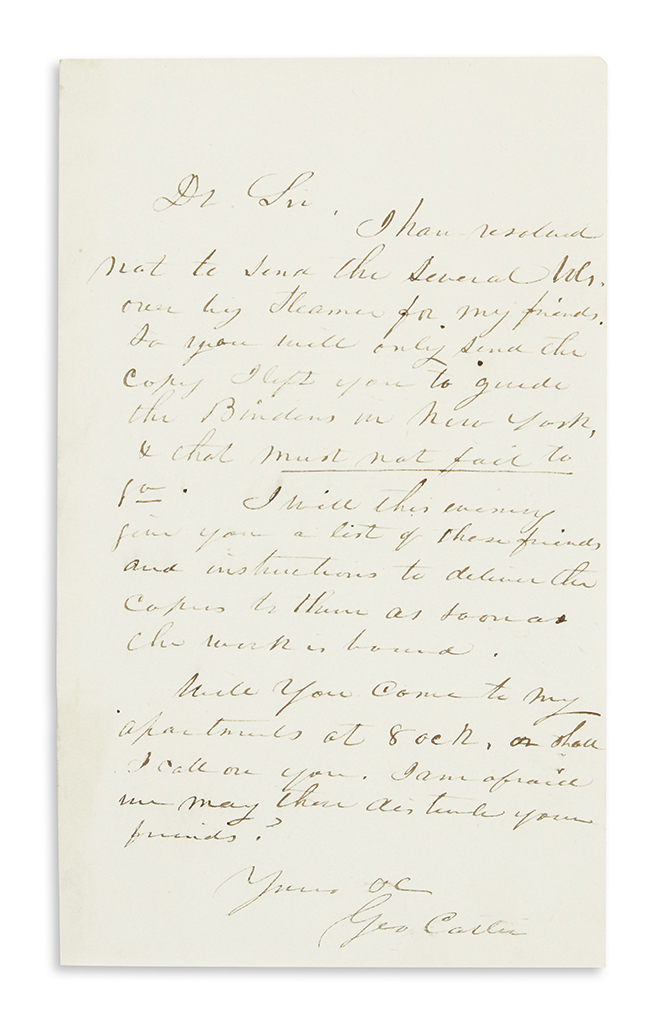 Dr. Sir,
I have resolved
not to send the several Vols.
over by Steamer for my friends.
So you will only send the
copy I left you to guide
the Binders in New York,
& that must not fail to
go. I will this evening
give you a list of those friends
and instructions to deliver the
copies to them as soon as
the work is bound.
Will You come to my
apartments at 8 ock, or shall
I call on you. I am afraid
we may then disturb your
friends?
Yours &c
Geo Catlin